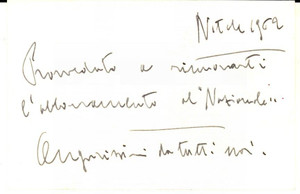 Natale 1969
Provveduto a rinnovarti
l'abbonamento al "Nazionale".
Augurissimi da tutti noi.